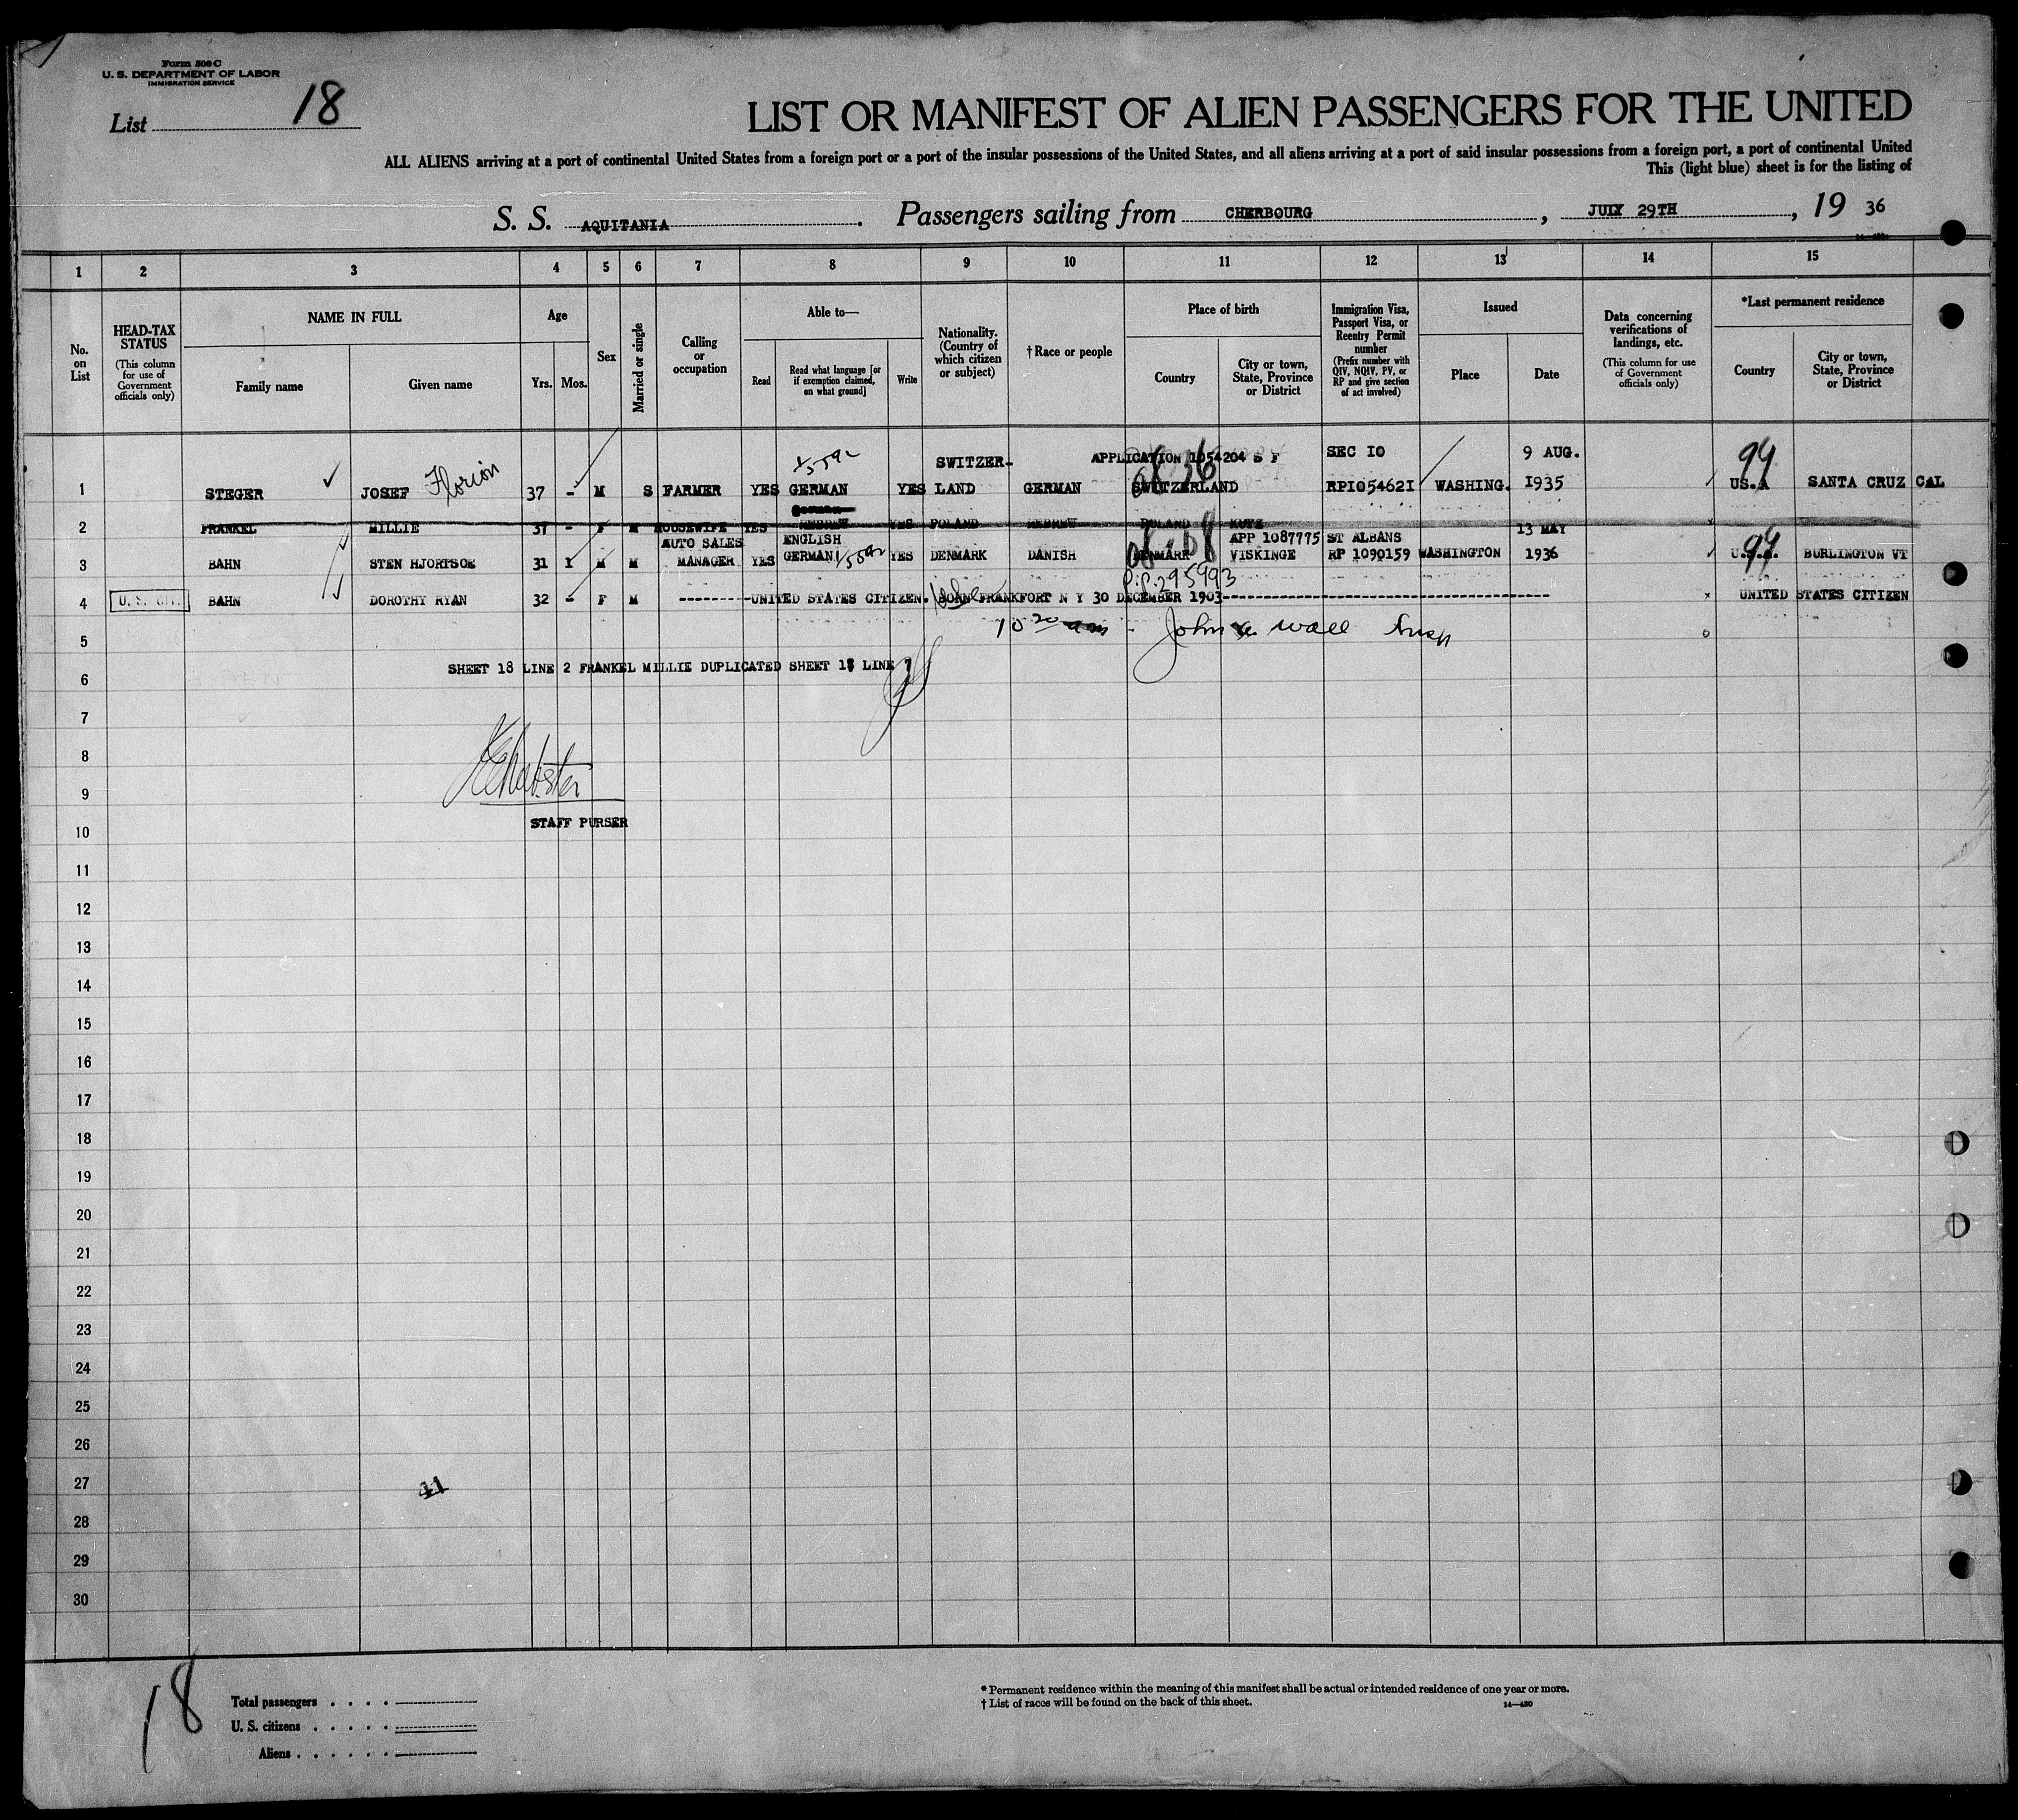 Form 500 C
U. S. DEPARTMENT OF LABOR
IMMIGRATION SERVICE
List 18
LIST OR MANIFEST OF ALIEN PASSENGERS FOR THE UNITED
ALL ALIENS arriving at a port of continental United States from a foreign port or a port of the insular possessions of the United States, and all aliens arriving at a port of said insular possessions from a foreign port, a port of continental United
This (light blue) sheet is for the listing of
S. S. AQUITANIA. Passengers sailing from CHERBOURG, JULY 29TH, 19 36
1 2 3 4 5 6 7 8 9 10 11 12 13 14 15
No. on List
HEAD-TAX STATUS (This column for use of Government officials only)
NAME IN FULL
Family name
Given name
Age
Yrs. Mos.
Sex
Married or single
Calling or occupation
Able to—
Read
Read what language [or if exemption claimed, on what ground]
Write
Nationality. (Country of which citizen or subject)
†Race or people
Place of birth
Country
City or town, State, Province or District
Immigration Visa, Passport Visa, or Reentry Permit number (Prefix number with QIV, NQIV, PV, or RP and give section of act involved)
Issued
Place
Date
Data concerning verifications of landings, etc. (This column for use of Government officials only)
*Last permanent residence
Country
City or town, State, Province or District
SWITZER- APPLICATION 1054204 S F SEC IO 9 AUG. 99
1 STEGER JOSEF Florian 37 - M S FARMER YES GERMAN YES LAND GERMAN SWITZERLAND RPI05462I WASHING. I935 US.A SANTA CRUZ CAL
German
2 FRANKEL MILLIE 37 - F M HOUSEWIFE YES HEBREW YES POLAND HEBREW POLAND KUTZ
AUTO SALES ENGLISH APP 1087775 ST ALBANS 13 MAY 99
3 BAHN STEN HJORTSOE 31 I M M MANAGER YES GERMAN YES DENMARK DANISH DENMARK VISKINGE RP 1090159 WASHINGTON 1936 U.S.A. BURLINGTON VT
P.P. 295993
4 U. S. CIT. BAHN DOROTHY RYAN 32 - F M ---------UNITED STATES CITIZEN. BORN FRANKFORT N Y 30 DECEMBER 1903---------- UNITED STATES CITIZEN
5 10 20 am - John Wall Insp
SHEET 18 LINE 2 FRANKEL MILLIE DUPLICATED SHEET 18 LINE
6
7
8
9
STAFF PURSER
10
11
12
13
14
15
16
17
18
19
20
21
22
23
24
25
26
27 41
28
29
30
18
Total passengers
U. S. citizens
Aliens
* Permanent residence within the meaning of this manifest shall be actual or intended residence of one year or more.
† List of races will be found on the back of this sheet.
14—430